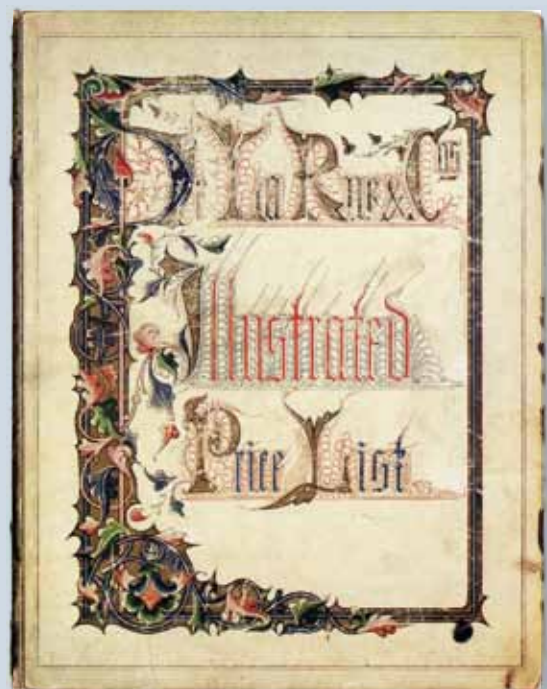 De La Rue & Cos
Illustrated
Price List